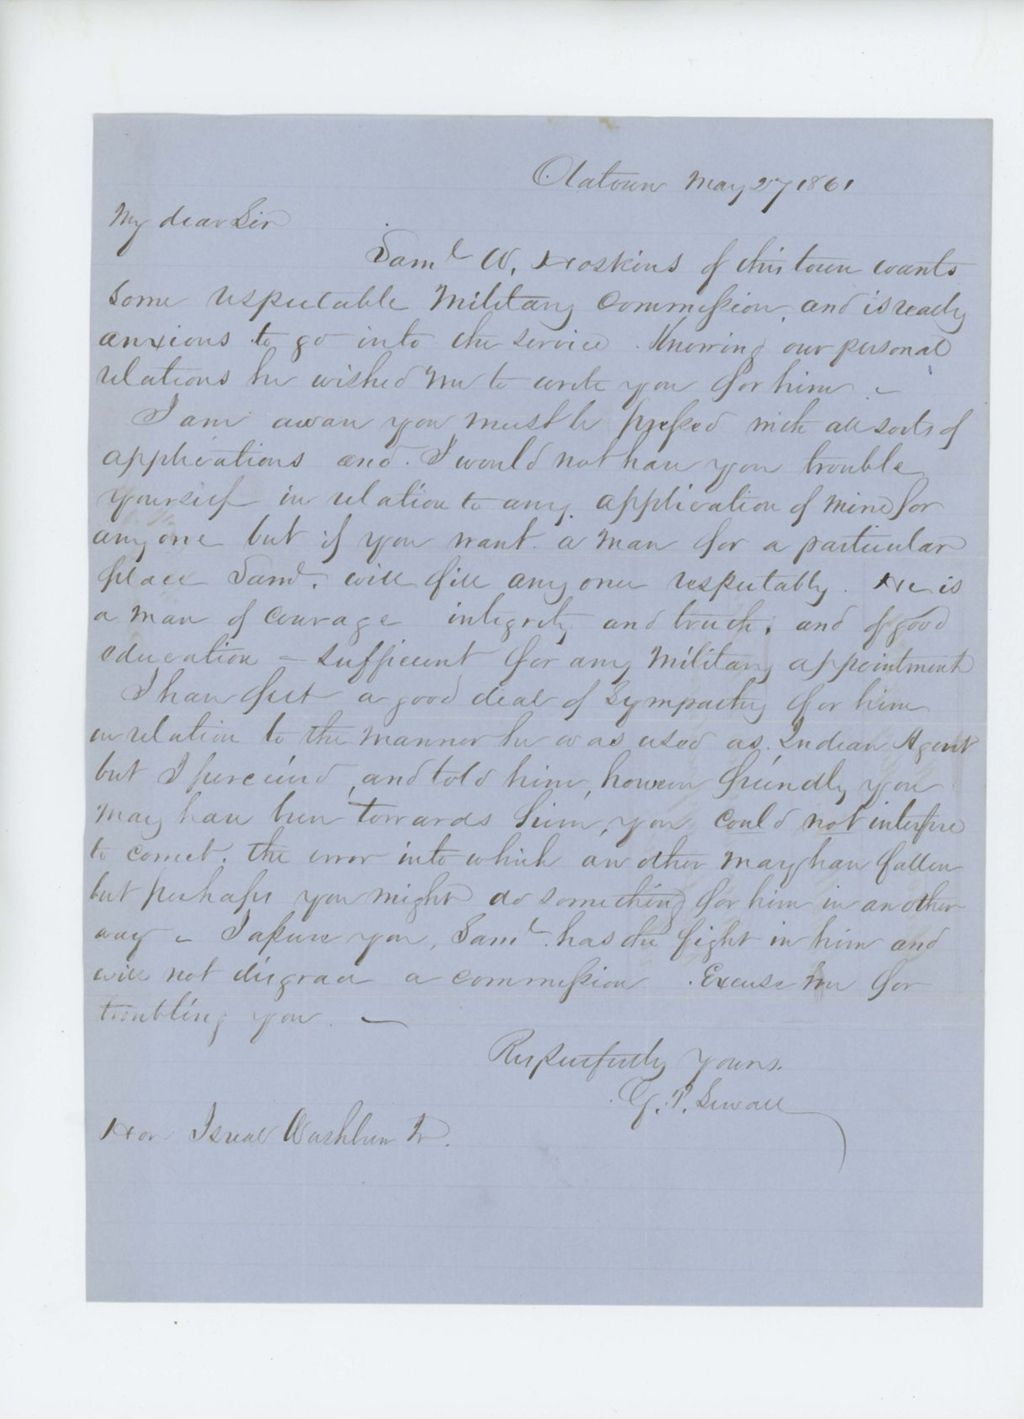 Oldtown May 27 1861
My dear Sir
Saml W. Hoskins of this town wants
some respectable Military Commission, and is really
anxious to go into the service. Knowing our personal
relations he wished me to write you for him –
I am aware you must be pressed with all sorts of
applications and I would not have you trouble
yourself in relation to any application of mine for
any one but if you want a man for a particular
place Saml. will fill any one respectably. He is
a man of courage integrity and truth, and of good
education – sufficient for any Military appointment
I have felt a good deal of Sympathy for him
in relation to the manner he was used as Indian Agent
but I perceived, and told him, however friendly you
may have been towards him, you could not interfere
to correct the error into which an other may have fallen
but perhaps you might do something for him in an other
way – I assure you, Saml has the fight in him and
will not disgrace a commission. Excuse me for
troubling you –
Respectfully Yours.
G. P. Sewall
Hon Israel Washburn Jr.